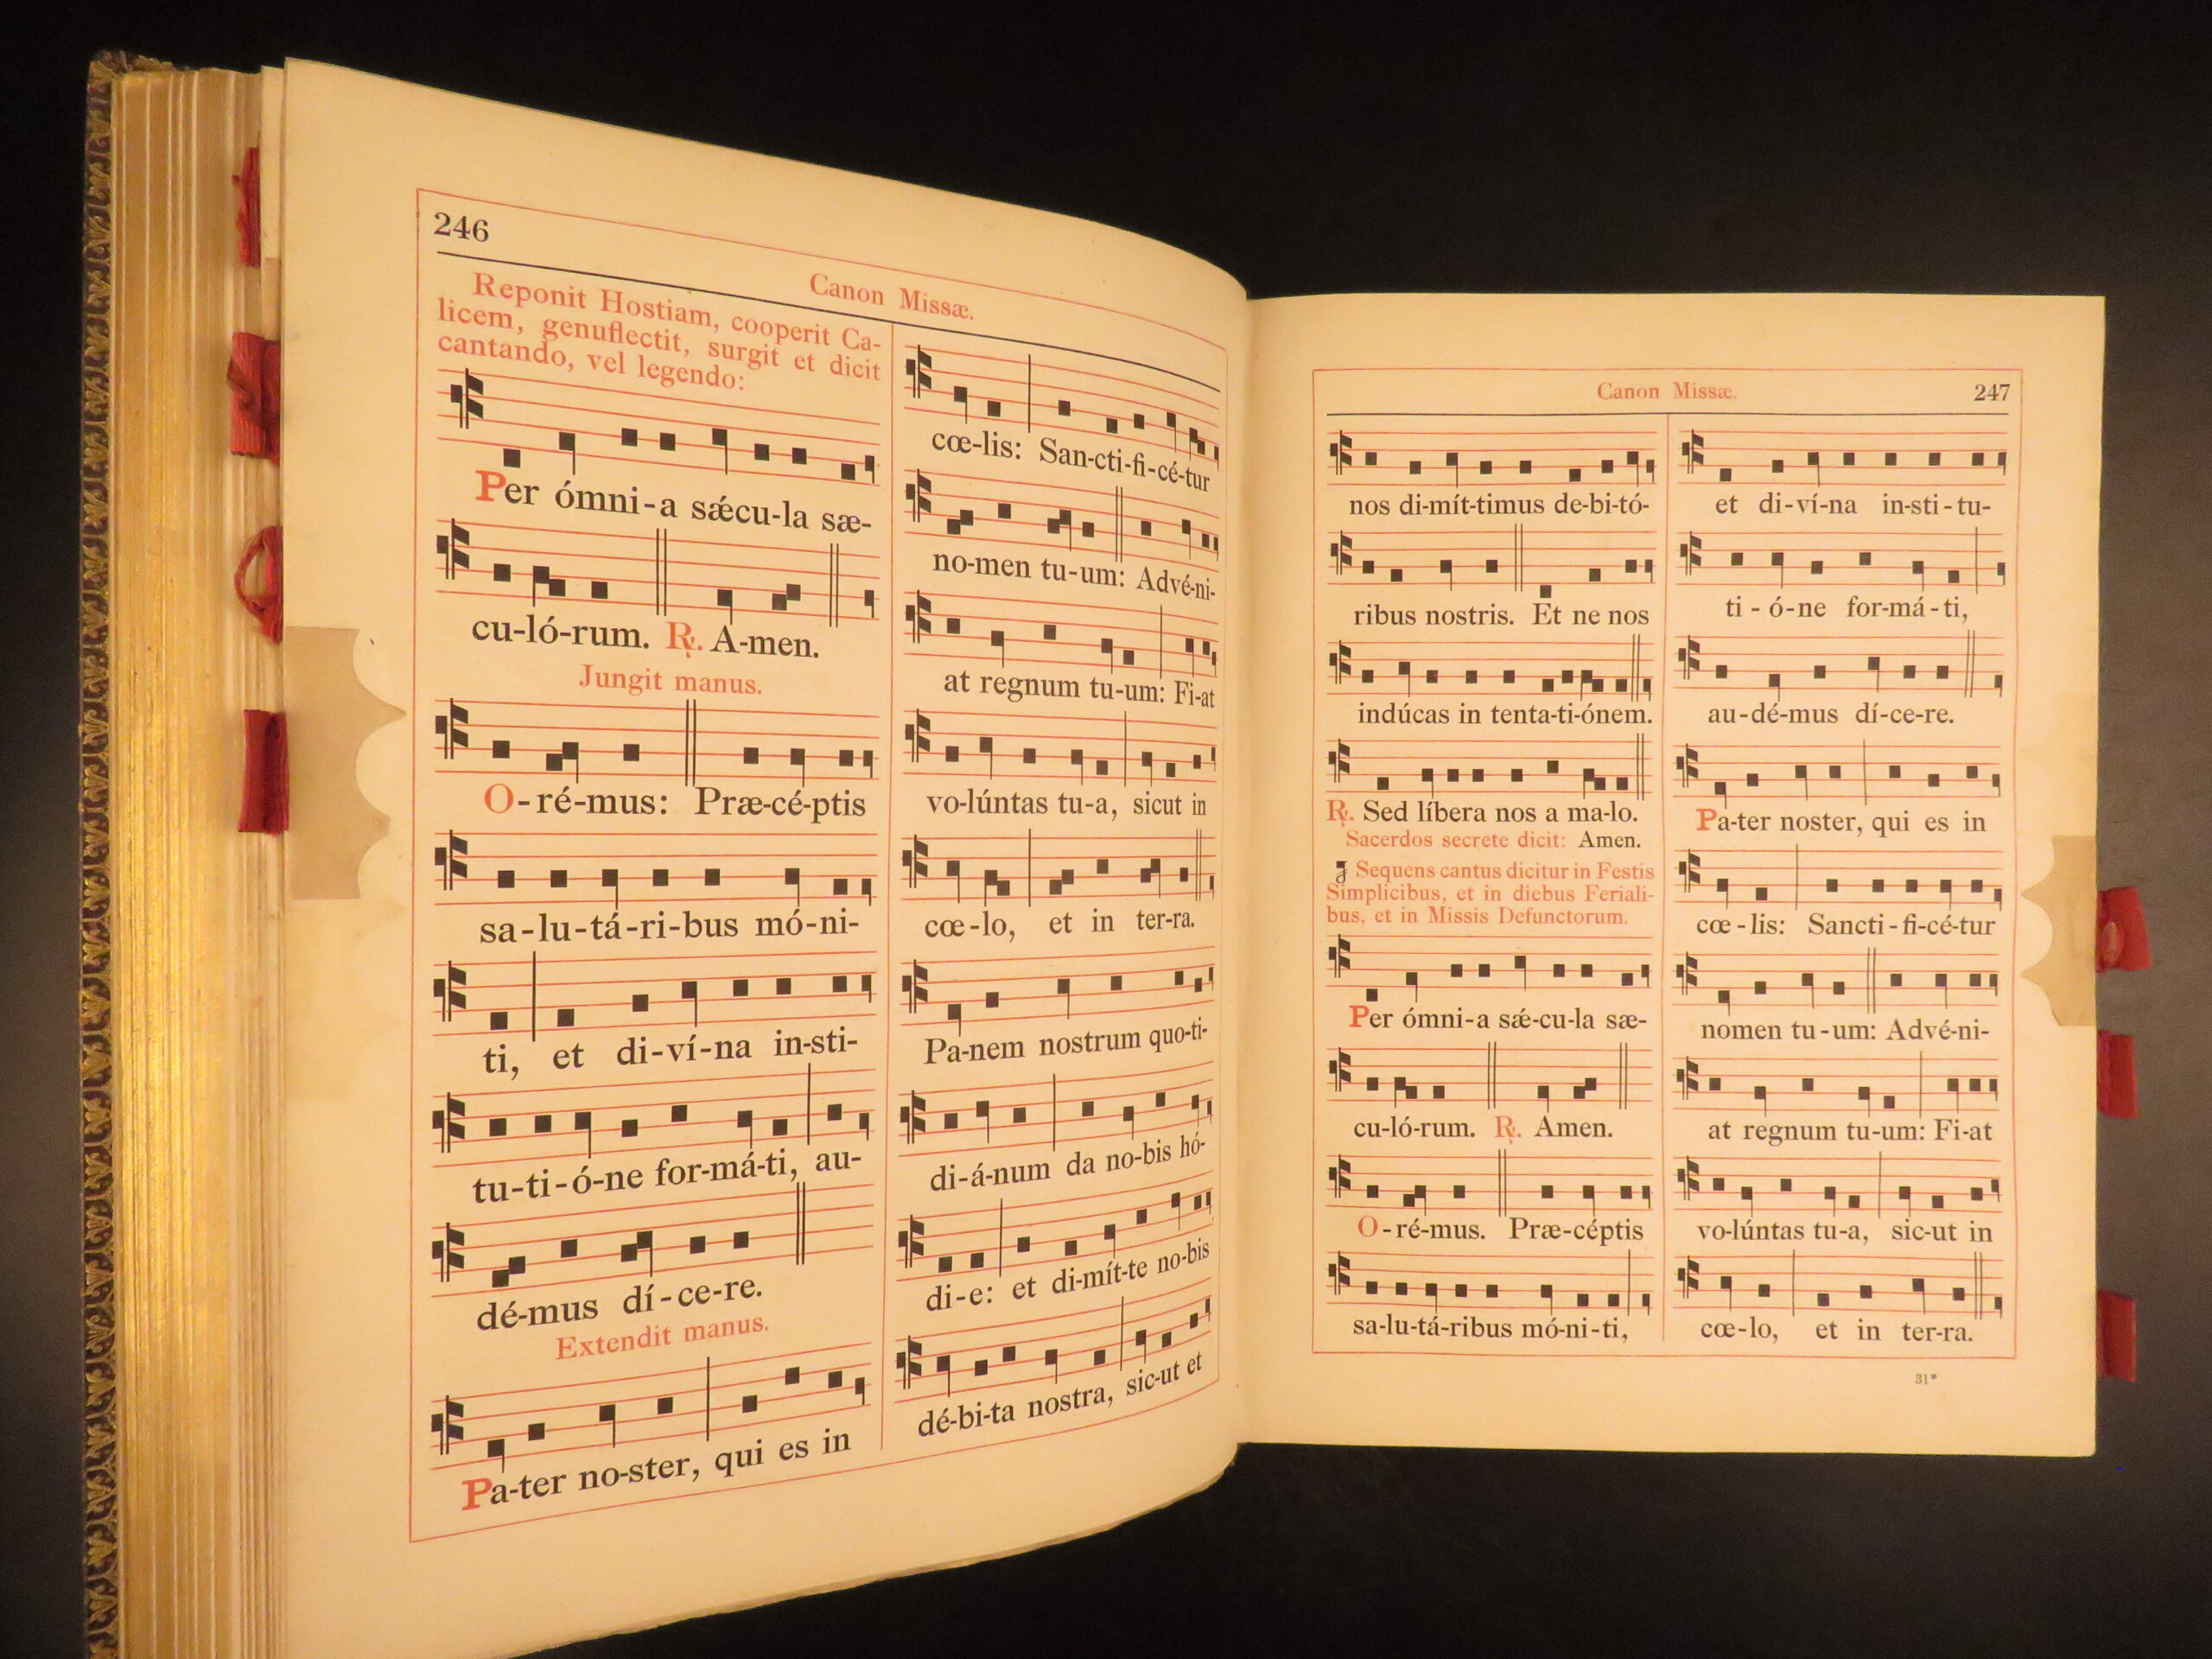 246
Canon Missæ.
Reponit Hostiam, cooperit Ca-
licem, genuflectit, surgit et dicit
cantando, vel legendo:
Per ómni-a sǽcu-la sæ-
cu-ló-rum. ℟. A-men.
Jungit manus.
O-ré-mus: Præ-cé-ptis
sa-lu-tá-ri-bus mó-ni-
ti, et di-ví-na in-sti-
tu-ti-ó-ne for-má-ti, au-
dé-mus dí-ce-re.
Extendit manus.
Pa-ter no-ster, qui es in
cœ-lis: San-cti-fi-cé-tur
no-men tu-um: Advé-ni-
at regnum tu-um: Fi-at
vo-lúntas tu-a, sicut in
cœ-lo, et in ter-ra.
Pa-nem nostrum quo-ti-
di-á-num da no-bis hó-
di-e: et di-mít-te no-bis
dé-bi-ta nostra, sic-ut et
Canon Missæ.
247
nos di-mít-timus de-bi-tó-
ribus nostris. Et ne nos
indúcas in tenta-ti-ónem.
℟. Sed líbera nos a ma-lo.
Sacerdos secrete dicit: Amen.
Sequens cantus dicitur in Festis
Simplicibus, et in diebus Feriali-
bus, et in Missis Defunctorum.
Per ómni-a sǽ-cu-la sæ-
cu-ló-rum. ℟. Amen.
O-ré-mus. Præ-céptis
sa-lu-tá-ribus mó-ni-ti,
et di-ví-na in-sti-tu-
ti-ó-ne for-má-ti,
au-dé-mus dí-ce-re.
Pa-ter noster, qui es in
cœ-lis: Sancti-fi-cé-tur
nomen tu-um: Advé-ni-
at regnum tu-um: Fi-at
vo-lúntas tu-a, sic-ut in
cœ-lo, et in ter-ra.
31*